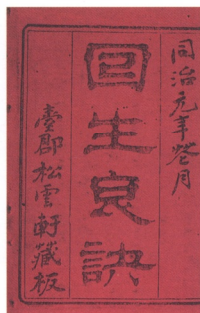 同治元年月
回生良訣
臺郡松雲軒藏板